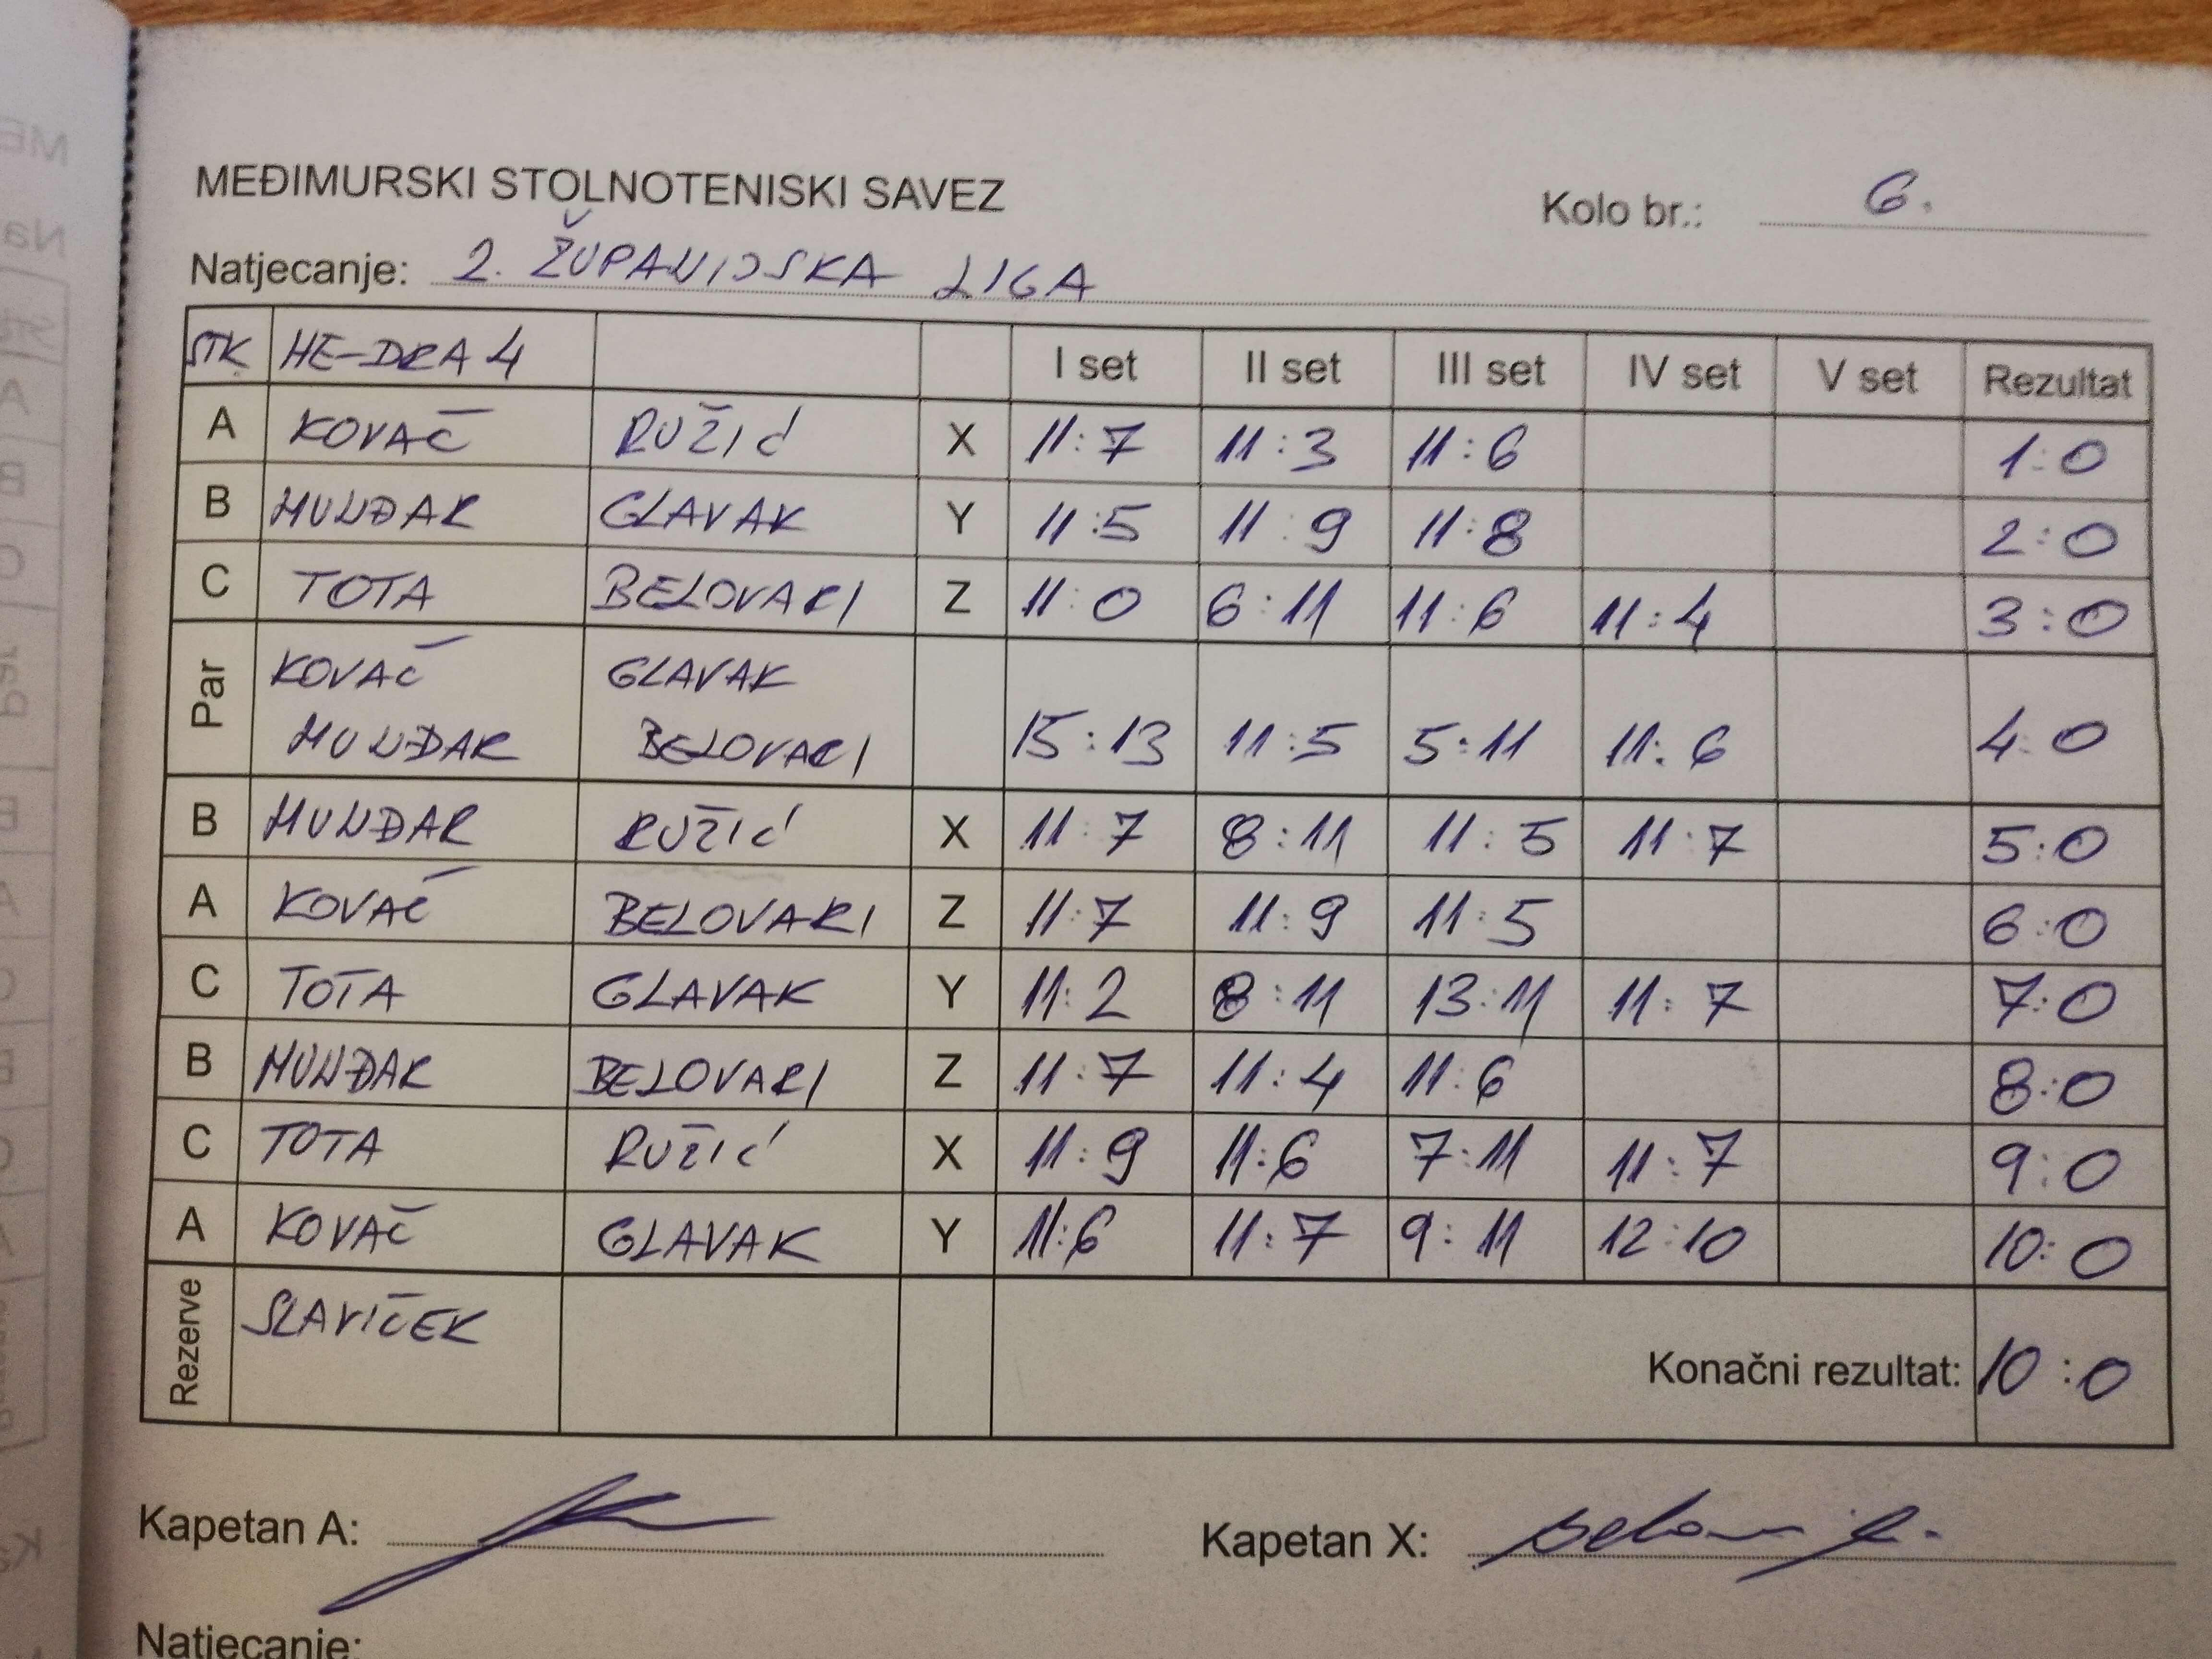 MEĐIMURSKI STOLNOTENISKI SAVEZ
Kolo br.: 6.
Natjecanje: 2. ŽUPANIJSKA LIGA
STK HE-DRA 4 I set II set III set IV set V set Rezultat
A KOVAČ RUŽIĆ X 11:7 11:3 11:6 1:0
B MUNĐAR GLAVAK Y 11:5 11:9 11:8 2:0
C TOTA BELOVARI Z 11:0 6:11 11:6 11:4 3:0
Par KOVAČ GLAVAK
MUNĐAR BELOVARI 15:13 11:5 5:11 11:6 4:0
B MUNĐAR RUŽIĆ X 11:7 8:11 11:5 11:7 5:0
A KOVAČ BELOVARI Z 11:7 11:9 11:5 6:0
C TOTA GLAVAK Y 11:2 8:11 13:11 11:7 7:0
B MUNĐAR BELOVARI Z 11:7 11:4 11:6 8:0
C TOTA RUŽIĆ X 11:9 11:6 7:11 11:7 9:0
A KOVAČ GLAVAK Y 11:6 11:7 9:11 12:10 10:0
Rezerve SLAVIČEK
Konačni rezultat: 10:0
Kapetan A:
Kapetan X:
Natjecanje: